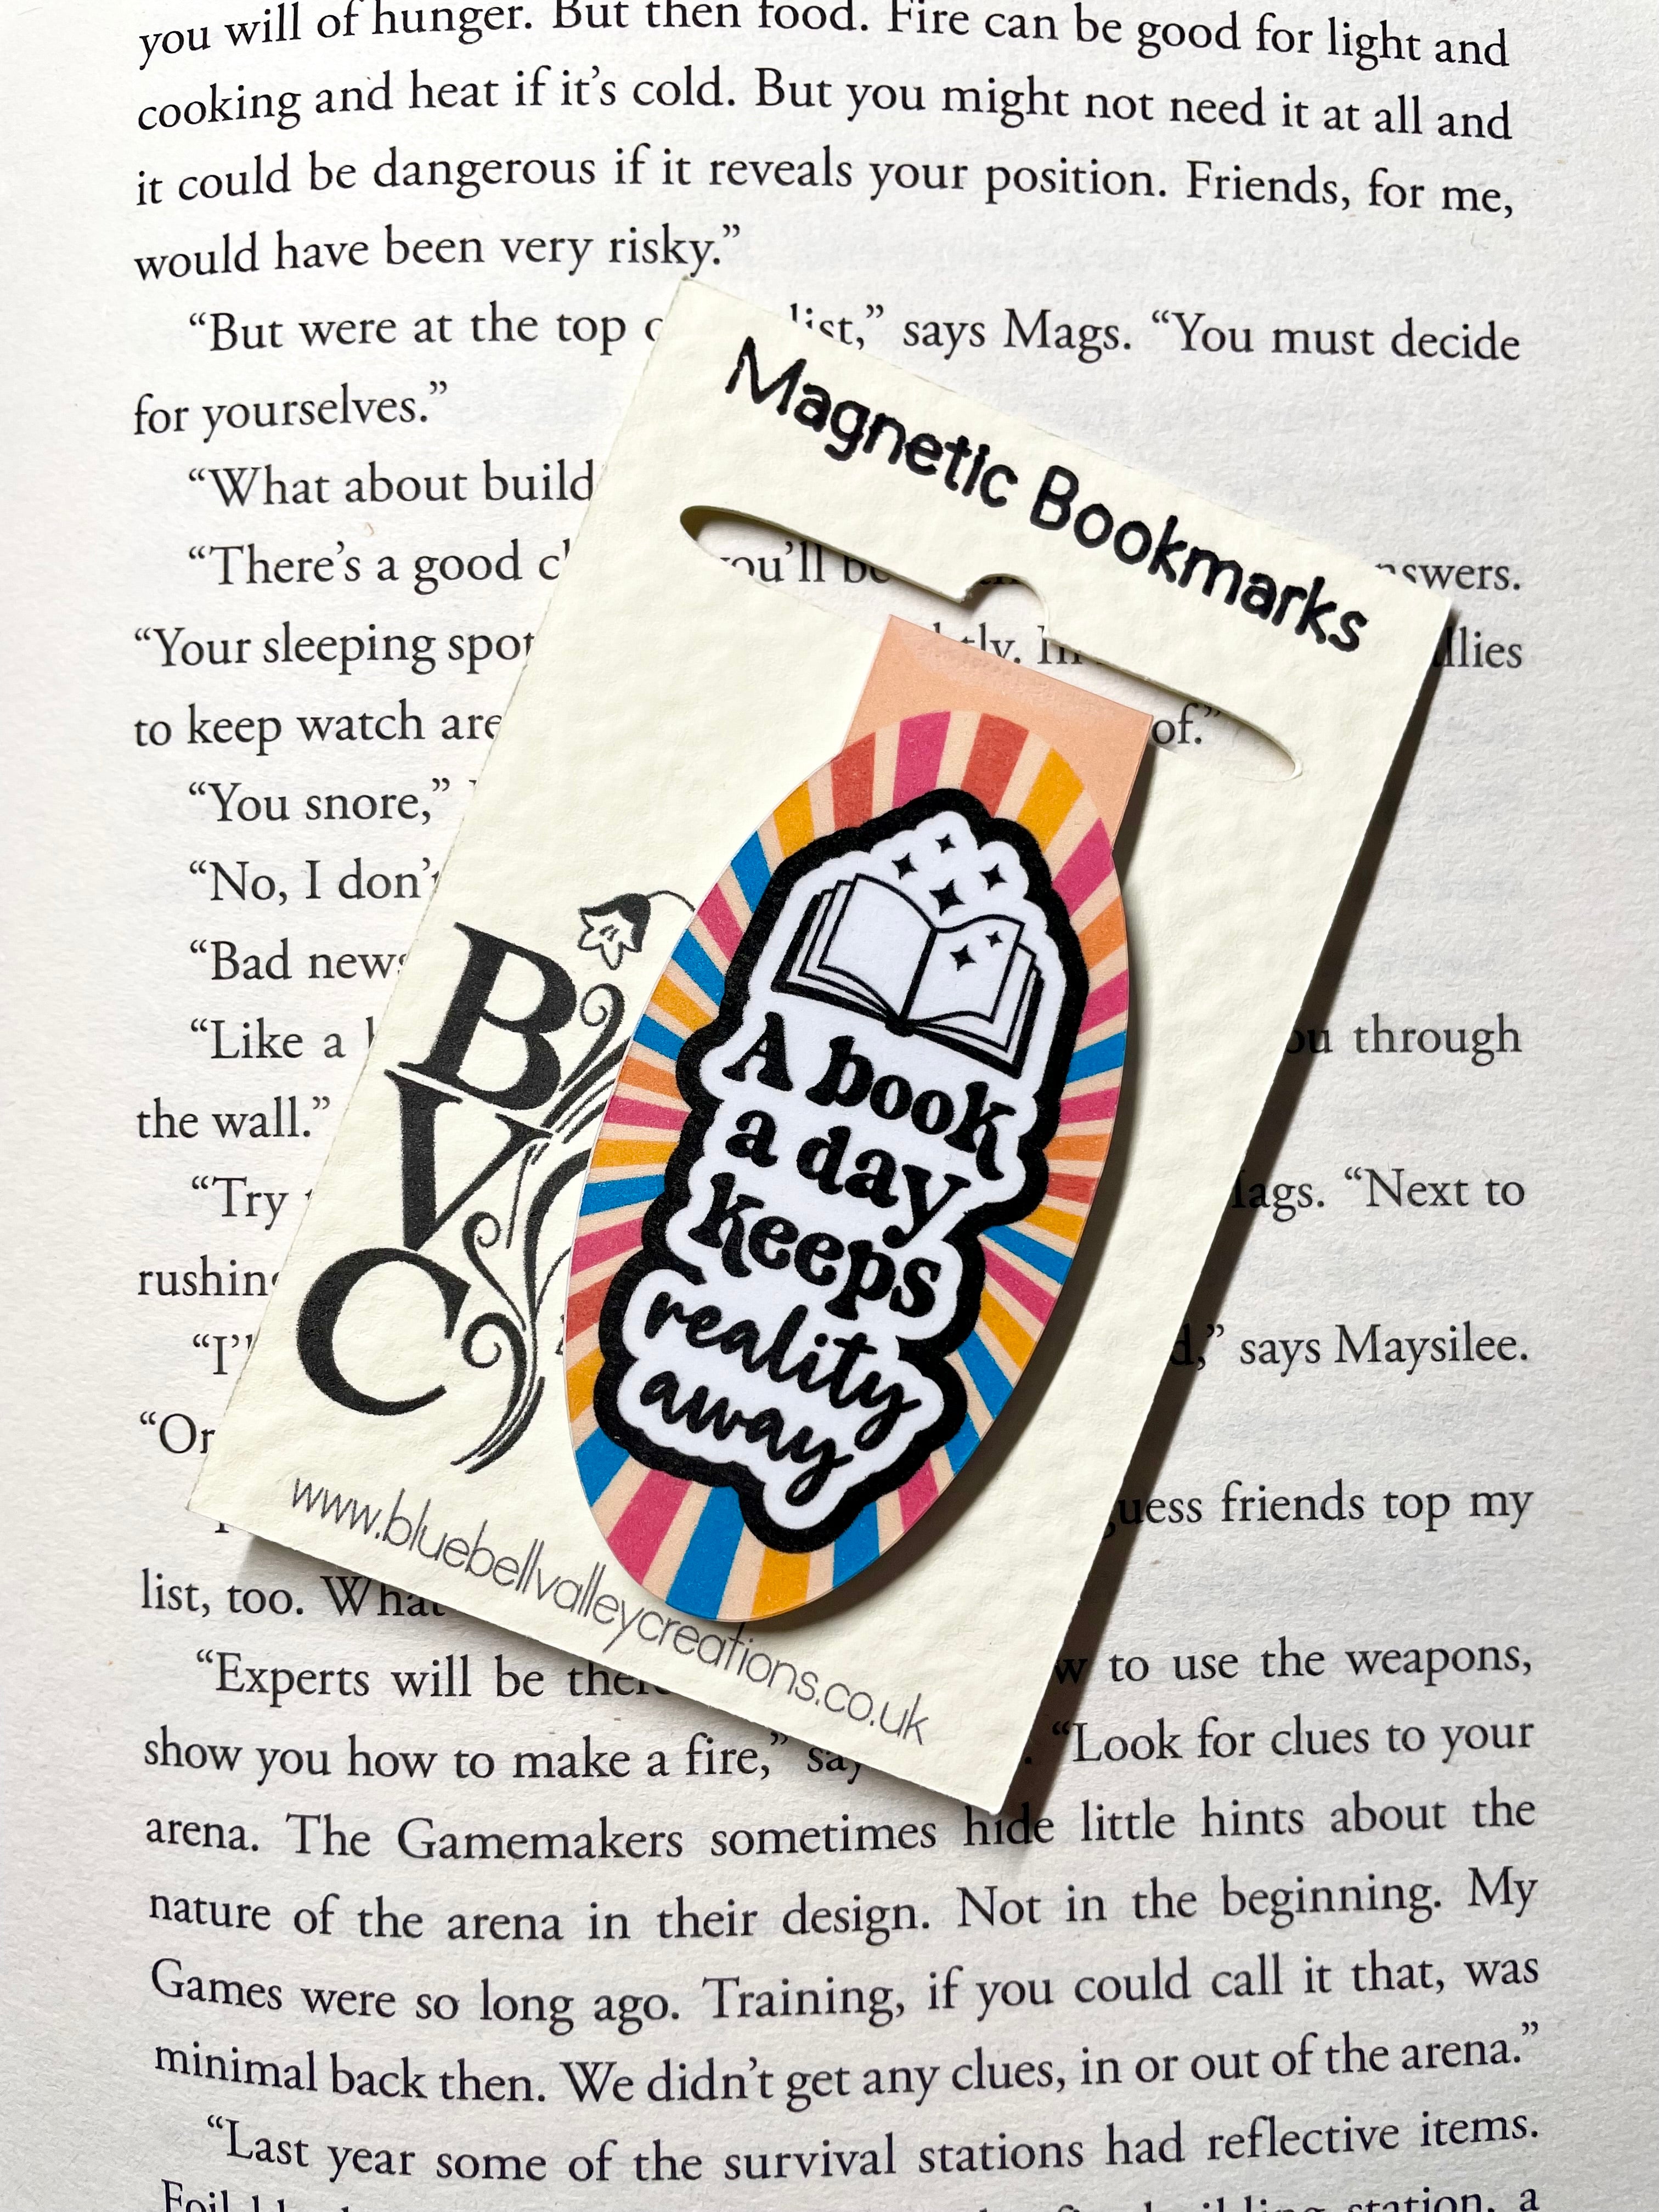 you will of hunger. But then food. Fire can be good for light and
cooking and heat if it’s cold. But you might not need it at all and
it could be dangerous if it reveals your position. Friends, for me,
would have been very risky.”
“But were at the top list,” says Mags. “You must decide
for yourselves.”
“What about build
“There’s a good you’ll answers.
“Your sleeping spot allies
to keep watch are of.”
“You snore,”
“No, I don’t
“Bad news
“Like a you through
the wall.”
“Try Mags. “Next to
rushing
“I’l says Maysilee.
“Or
guess friends top my
list, too. What
“Experts will be there to use the weapons,
show you how to make a fire,” “Look for clues to your
arena. The Gamemakers sometimes hide little hints about the
nature of the arena in their design. Not in the beginning. My
Games were so long ago. Training, if you could call it that, was
minimal back then. We didn’t get any clues, in or out of the arena.”
“Last year some of the survival stations had reflective items.
station, a
Magnetic Bookmarks
A book
a day
keeps
reality
away
B
V
C
www.bluebellvalleycreations.co.uk